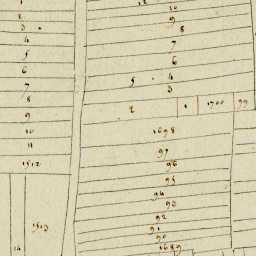 1
2
3
4
5
6
7
8
9
10
11
1512
1513
14
12
10
9
8
7
6
5 4
3
2 1 1700 99
1698
97
96
95
94
93
92
91
90
1689